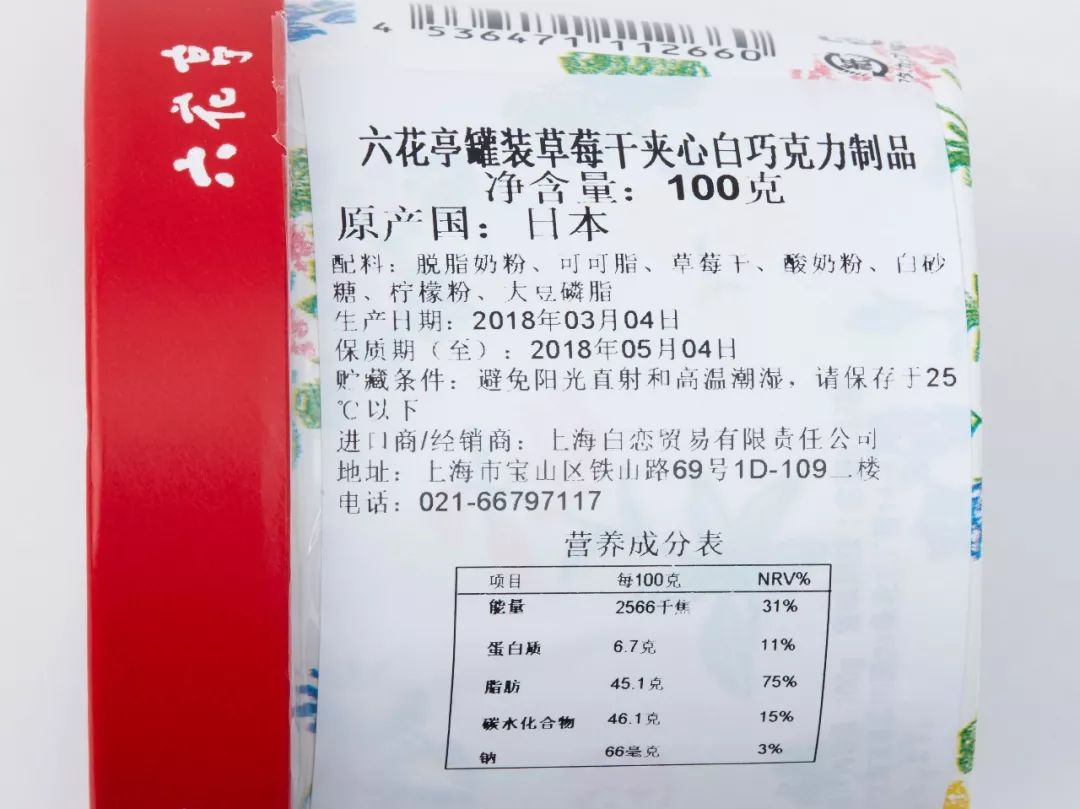 六花亭
4 536471 112660
六花亭罐装草莓干夹心白巧克力制品
净含量：100克
原产国：日本
配料：脱脂奶粉、可可脂、草莓干、酸奶粉、白砂
糖、柠檬粉、大豆磷脂
生产日期：2018年03月04日
保质期（至）：2018年05月04日
贮藏条件：避免阳光直射和高温潮湿，请保存于25
℃以下
进口商/经销商：上海白恋贸易有限责任公司
地址：上海市宝山区铁山路69号1D-109二楼
电话：021-66797117
营养成分表
项目 每100克 NRV%
能量 2566千焦 31%
蛋白质 6.7克 11%
脂肪 45.1克 75%
碳水化合物 46.1克 15%
钠 66毫克 3%